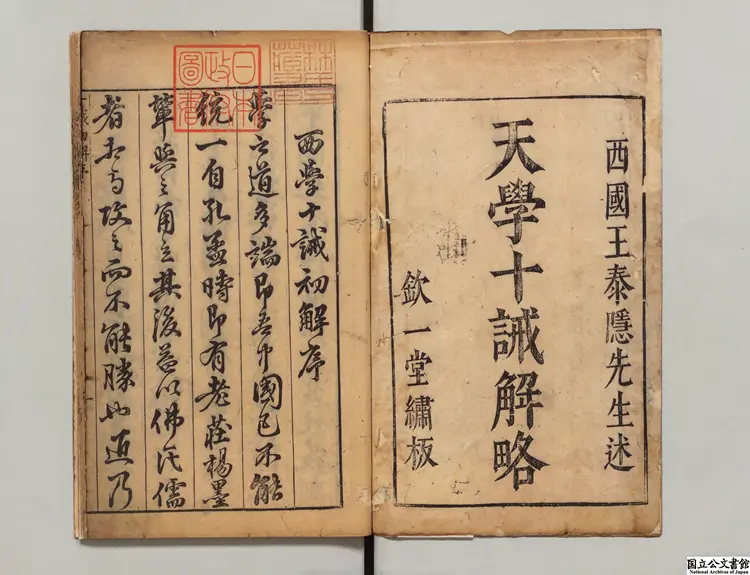 西國王泰隱先生述
天學十誡解略
欽一堂繡板
西學十誡初解序
學之道多端即吾中國已不能
統一自孔孟時即有老莊楊墨
輩與之角立其後益以佛氏儒
者相與攻之而不能勝也近乃
日本政府圖書
林氏藏書
国立公文書館
National Archives of Japan